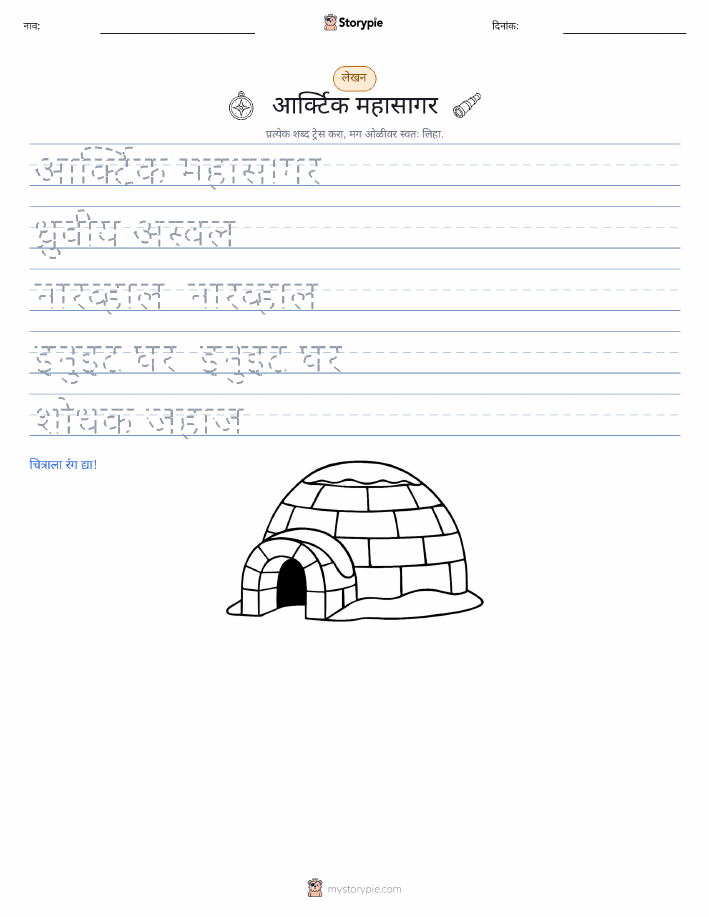 नाव:
Storypie
दिनांक:
लेखन
आर्क्टिक महासागर
प्रत्येक शब्द ट्रेस करा, मग ओळीवर स्वतः लिहा.
आर्क्टिक महासागर
ध्रुवीय अस्वल
नारव्हाल नारव्हाल
इनुइट घर इनुइट घर
शोधक जहाज
चित्राला रंग द्या!
mystorypie.com